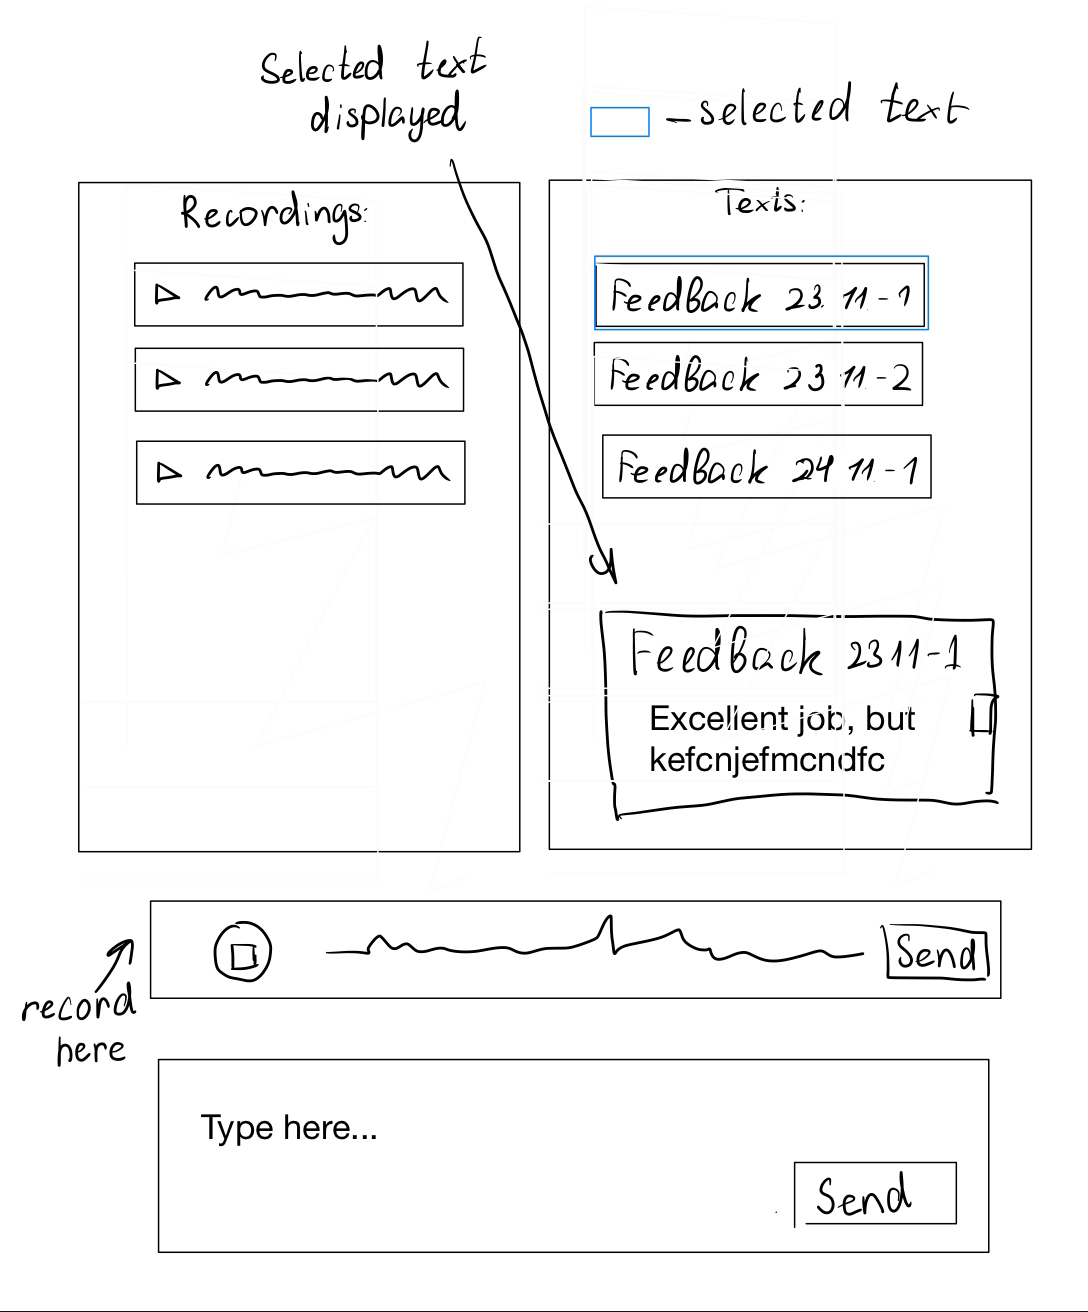 Selected text
displayed
- selected text
Recordings:
Texts:
FeedBack 23.11-1
FeedBack 23 11-2
FeedBack 24 11-1
FeedBack 23 11-1
Excellent job, but
kefcnjefmcndfc
Send
record
here
Type here...
Send